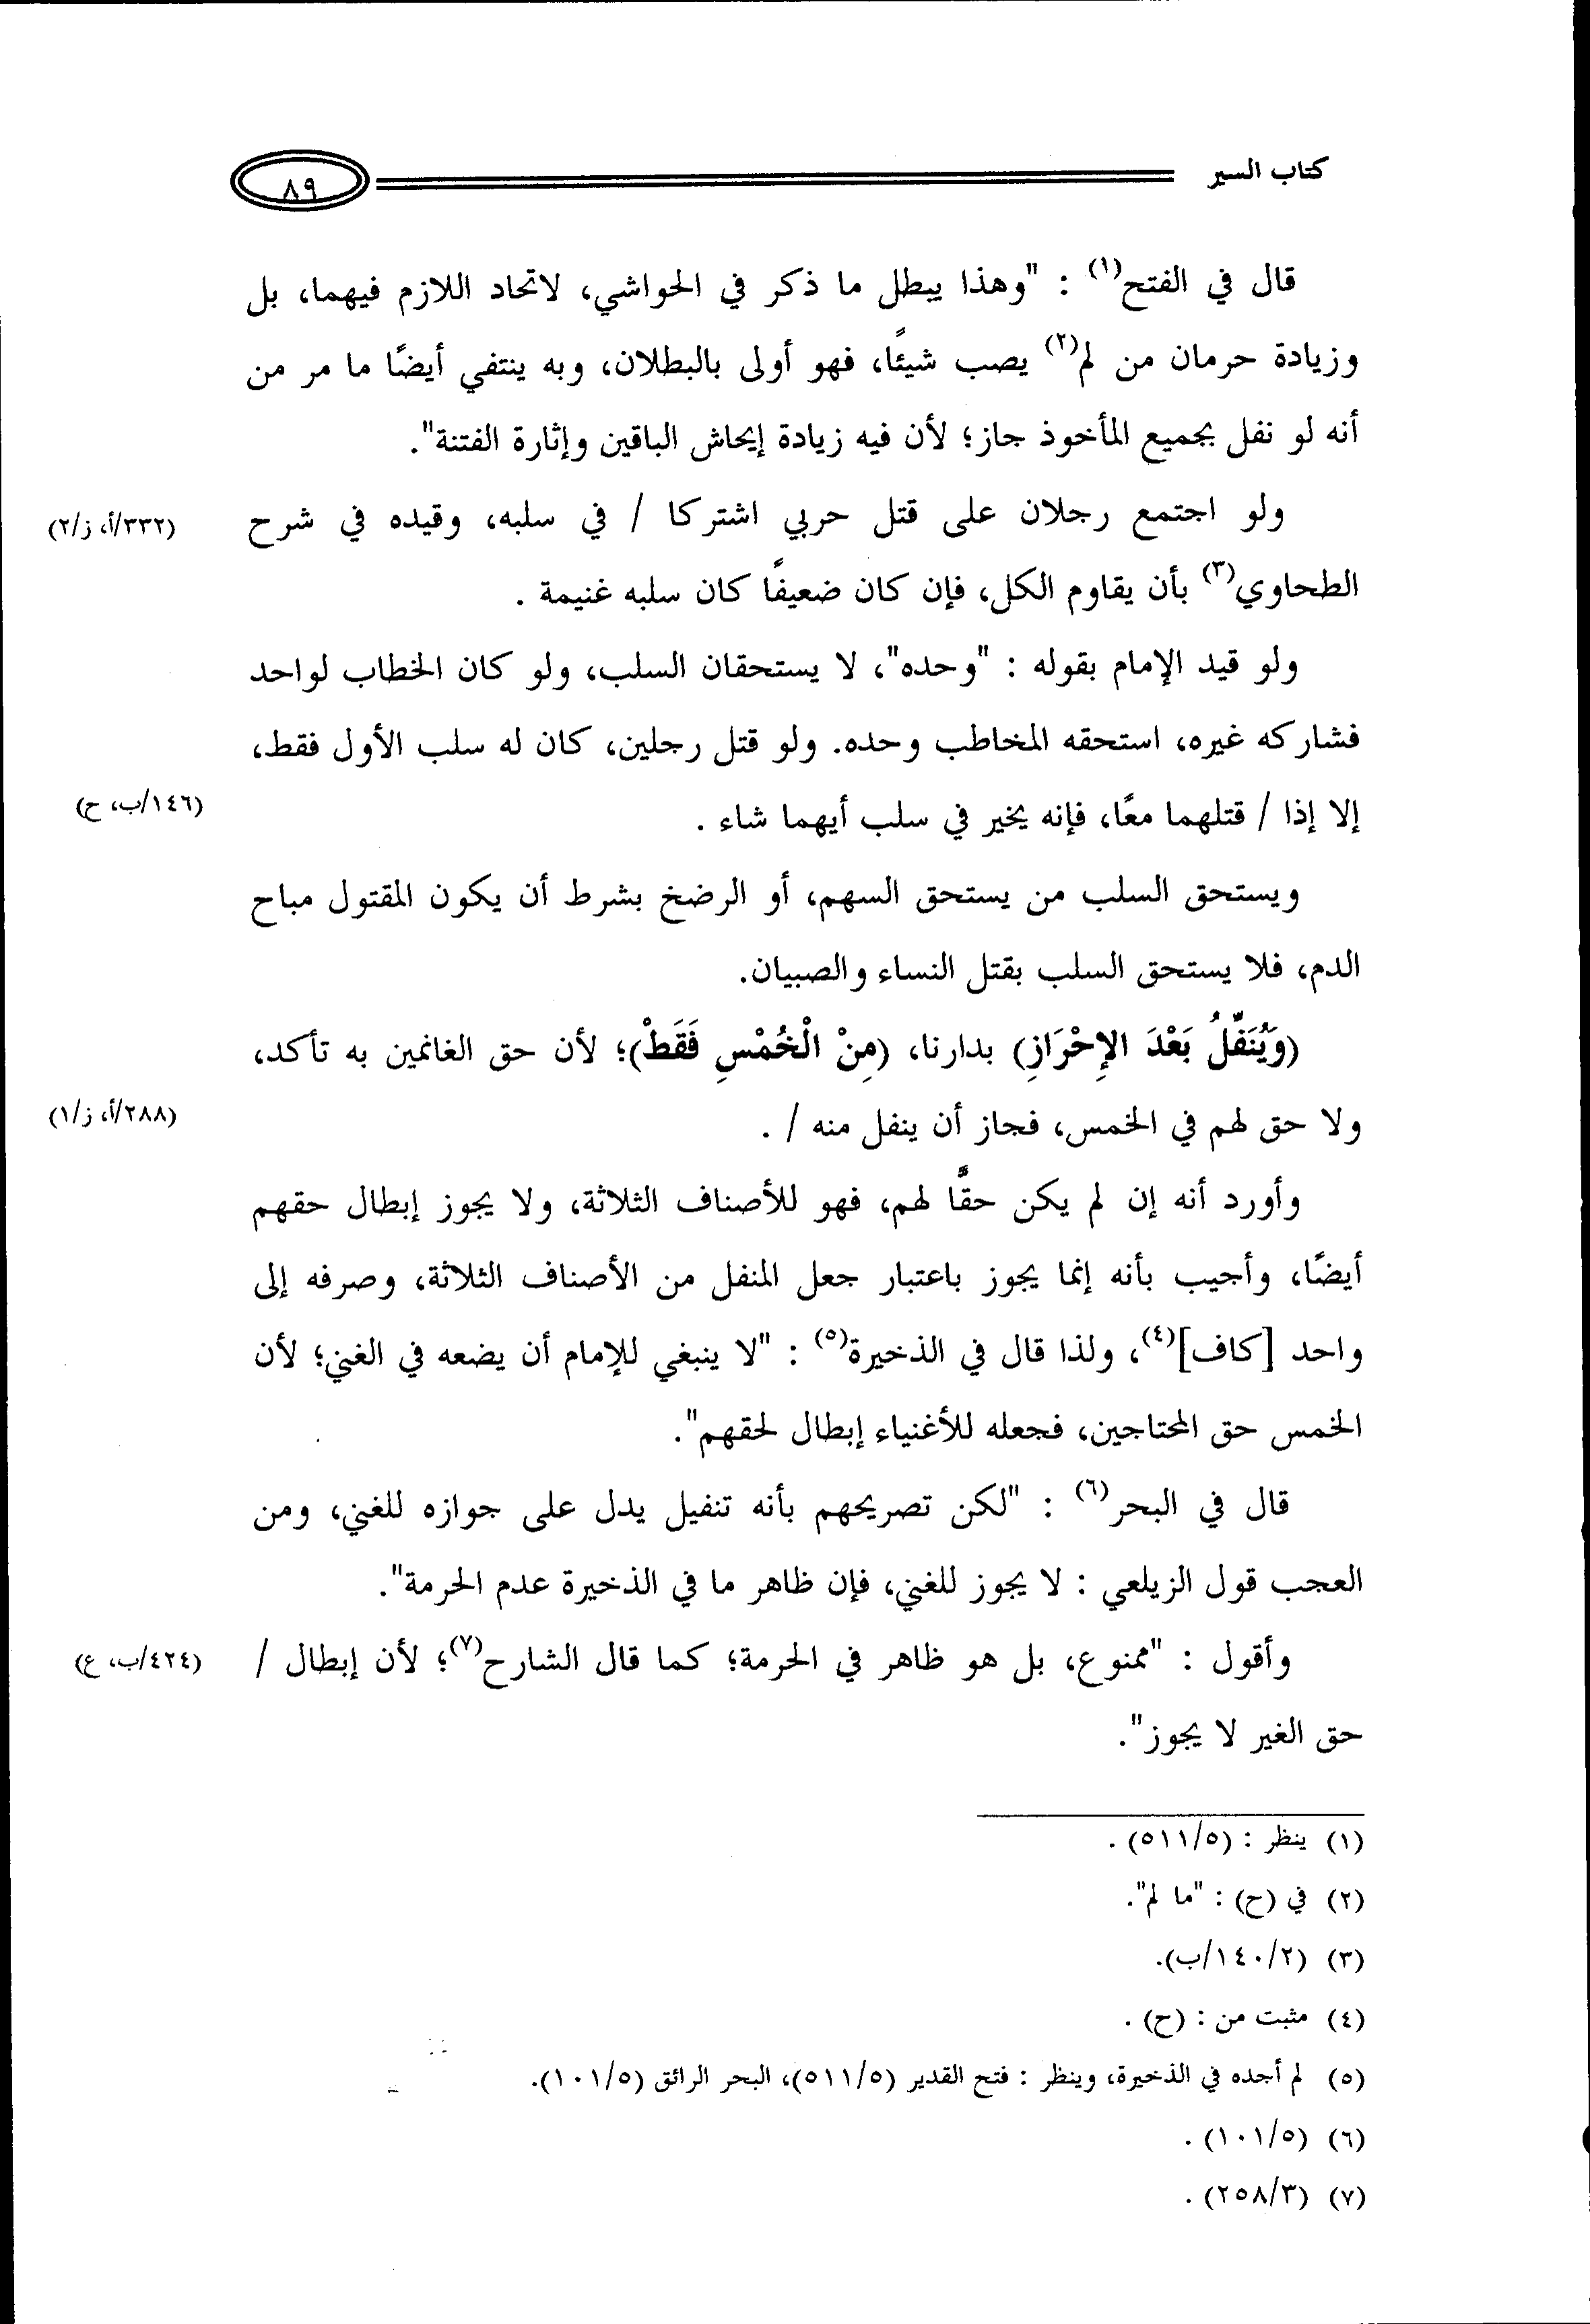 كتاب السير
٨٩
قال في الفتح(١) : "وهذا يبطل ما ذكر في الحواشي، لاتحاد اللازم فيهما، بل
وزيادة حرمان من لم(٢) يصب شيئًا، فهو أولى بالبطلان، وبه ينتفي أيضًا ما مر من
أنه لو نفل بجميع المأخوذ جاز؛ لأن فيه زيادة إيحاش الباقين وإثارة الفتنة".
ولو اجتمع رجلان على قتل حربي اشتركا / في سلبه، وقيده في شرح
(٣٣٢/أ، ز/٢)
الطحاوي(٣) بأن يقاوم الكل، فإن كان ضعيفًا كان سلبه غنيمة .
ولو قيد الإمام بقوله : "وحده"، لا يستحقان السلب، ولو كان الخطاب لواحد
فشاركه غيره، استحقه المخاطب وحده. ولو قتل رجلين، كان له سلب الأول فقط،
إلا إذا / قتلهما معًا، فإنه يخير في سلب أيهما شاء .
(١٤٦/ب، ح)
ويستحق السلب من يستحق السهم، أو الرضخ بشرط أن يكون المقتول مباح
الدم، فلا يستحق السلب بقتل النساء والصبيان.
(وَيُنَفِّلُ بَعْدَ الإِحْرَازِ) بدارنا، (مِنْ الْخُمْسِ فَقَطْ)؛ لأن حق الغانمين به تأكد،
ولا حق لهم في الخمس، فجاز أن ينفل منه / .
(٢٨٨/أ، ز/١)
وأورد أنه إن لم يكن حقًّا لهم، فهو للأصناف الثلاثة، ولا يجوز إبطال حقهم
أيضًا، وأجيب بأنه إنما يجوز باعتبار جعل المنفل من الأصناف الثلاثة، وصرفه إلى
واحد [كاف](٤)، ولذا قال في الذخيرة(٥) : "لا ينبغي للإمام أن يضعه في الغني؛ لأن
الخمس حق المحتاجين، فجعله للأغنياء إبطال لحقهم".
قال في البحر(٦) : "لكن تصريحهم بأنه تنفيل يدل على جوازه للغني، ومن
العجب قول الزيلعي : لا يجوز للغني، فإن ظاهر ما في الذخيرة عدم الحرمة".
وأقول : "ممنوع، بل هو ظاهر في الحرمة؛ كما قال الشارح(٧)؛ لأن إبطال /
(٤٢٤/ب، ع)
حق الغير لا يجوز".
(١) ينظر : (٥١١/٥) .
(٢) في (ح) : "ما لم".
(٣) (١٤٠/٢/ب).
(٤) مثبت من : (ح) .
(٥) لم أجده في الذخيرة، وينظر : فتح القدير (٥١١/٥)، البحر الرائق (١٠١/٥).
(٦) (١٠١/٥) .
(٧) (٢٥٨/٣) .